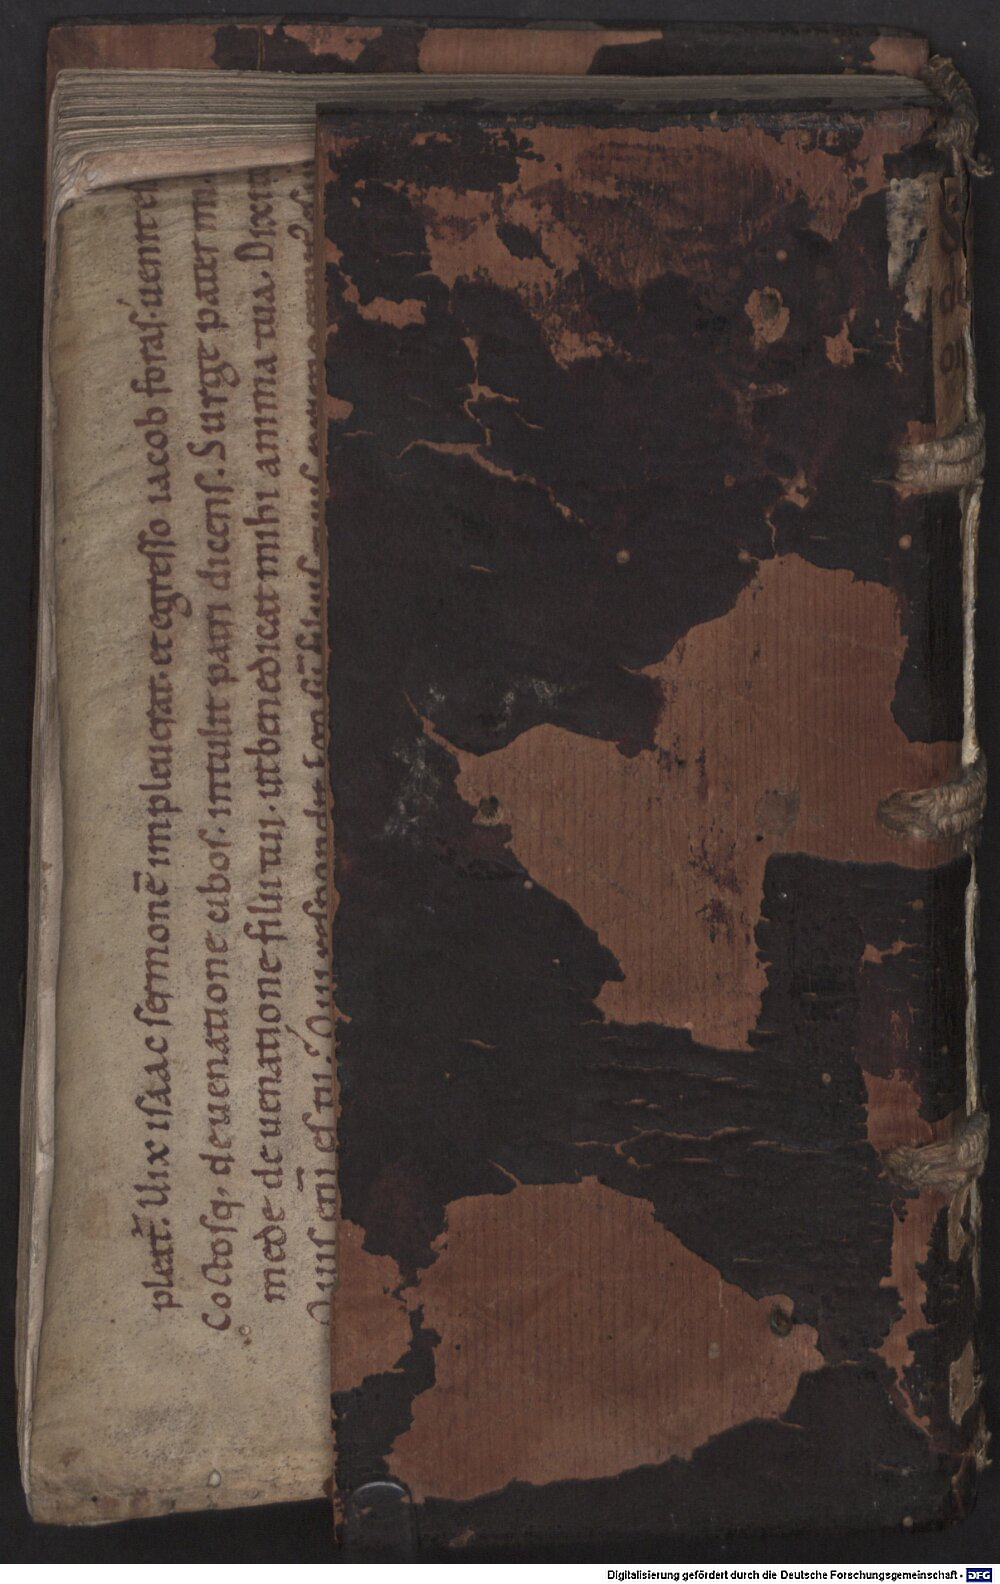 pleat̄. Uix isaac sermonē impleuerat. et egresso iacob foras. uenit e
Coctosq, de uenatione cibos. intulit patri dicens. Surge pater mi
mede de uenatione filii tui. ut benedicat mihi anima tua. Dixit
es tu?
Digitalisierung gefördert durch die Deutsche Forschungsgemeinschaft - DFG